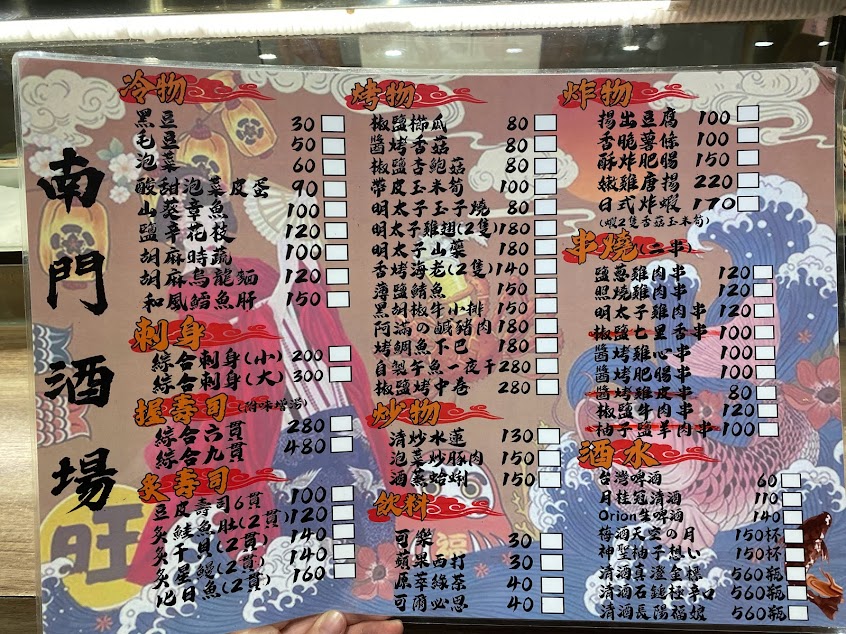 南門酒場
冷物
黑豆 30
毛豆 50
泡菜 60
酸甜泡菜皮蛋 90
山葵章魚 100
鹽辛花枝 120
胡麻時蔬 100
胡麻烏龍麵 120
和風鮟魚肝 150
刺身
綜合刺身(小) 200
綜合刺身(大) 300
握壽司(附味增湯)
綜合六貫 280
綜合九貫 480
炙壽司
豆皮壽司6貫 100
炙鮭魚肚(2貫) 120
炙干貝(2貫) 140
炙星鰻(2貫) 140
炙比目魚(2貫) 160
烤物
椒鹽櫛瓜 80
醬烤香菇 80
椒鹽杏鮑菇 80
帶皮玉米筍 100
明太子玉子燒 80
明太子雞翅(2隻) 180
明太子山藥 180
香烤海老(2隻) 140
薄鹽鯖魚 150
黑胡椒牛小排 150
阿滿の鹹豬肉 180
烤鯛魚下巴 180
自製午魚一夜干 280
椒鹽烤中卷 280
炒物
清炒水蓮 130
泡菜炒豚肉 150
酒蒸蛤蜊 150
飲料
可樂 30
蘋果西打 30
原萃綠茶 40
可爾必思 40
炸物
揚出豆腐 100
香脆薯條 100
酥炸肥腸 150
嫩雞唐揚 220
日式炸蝦 170
(蝦2隻香菇玉米筍)
串燒(二串)
鹽蔥雞肉串 120
照燒雞肉串 120
明太子雞肉串 120
椒鹽七里香串 100
醬烤雞心串 100
醬烤肥腸串 100
醬烤雞皮串 80
椒鹽牛肉串 120
柚子鹽羊肉串 100
酒水
台灣啤酒 60
月桂冠清酒 110
Orion生啤酒 140
梅酒天空の月 150杯
神聖柚子想い 150杯
清酒真澄金標 560瓶
清酒石鎚極辛口 560瓶
清酒長陽福娘 560瓶
旺
福